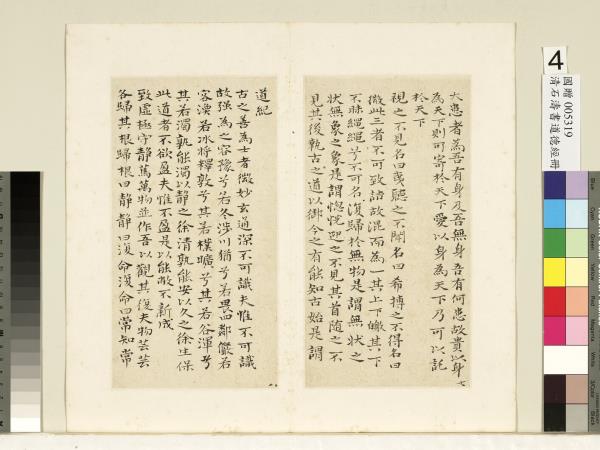 大患者為吾有身及吾無身吾有何患故貴以身
為天下則可寄於天下愛以身為天下乃可以託
於天下
視之不見名曰夷聽之不聞名曰希搏之不得名曰
微此三者不可致詰故混而為一其上不皦其下
不昧繩繩兮不可名復歸於無物是謂無狀之
狀無象之象是謂惚恍迎之不見其首隨之不
見其後執古之道以御今之有能知古始是謂
道紀
古之善為士者微妙玄通深不可識夫惟不可識
故强為之容豫兮若冬涉川猶兮若畏四鄰儼若
客渙若冰將釋敦兮其若樸曠兮其若谷渾兮
其若濁孰能濁以靜之徐清孰能安以久之徐生保
此道者不欲盈夫惟不盈是以能敝不新成
致虛極守靜篤萬物並作吾以觀其復夫物芸芸
各歸其根歸根曰靜靜曰復命復命曰常知常
4
國贈 005319
清石濤書道德經冊
七
八
Blue
Cyan
Green
Yellow
Red
Magenta
White
3/Color
Black